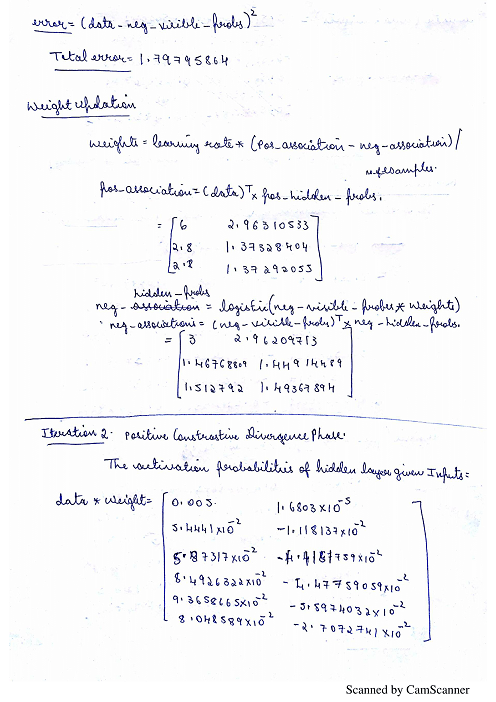 error = (data - neg_visible_probs)²
Total error = 1.79795864
Weight Updation
weights = learning rate * (Pos_association - neg_association) /
no of samples.
pos_association = (data)ᵀ x pos_hidden_probs.
= [ 6 2.96310533
2.8 1.37328404
2.8 1.37292053 ]
hidden_probs
neg_association = logistic(neg-visible-probs * weights)
neg_associations = (neg-visible-probs)ᵀ x neg-hidden-probs.
= [ 3 2.96209713
1.46768809 1.44914489
1.512792 1.49367894 ]
Iteration 2. Positive Constrastive Divergence Phase.
The activation probabilities of hidden layer given Inputs =
data * weight = [ 0.005. 1.6803x10⁻⁵
5.4441x10⁻² -1.118137x10⁻²
5.87317x10⁻² -1.4187759x10⁻²
8.4926322x10⁻² -1.47759059x10⁻²
9.3658665x10⁻² -5.5974032x10⁻²
8.048589x10⁻² -2.7072741x10⁻² ]
Scanned by CamScanner